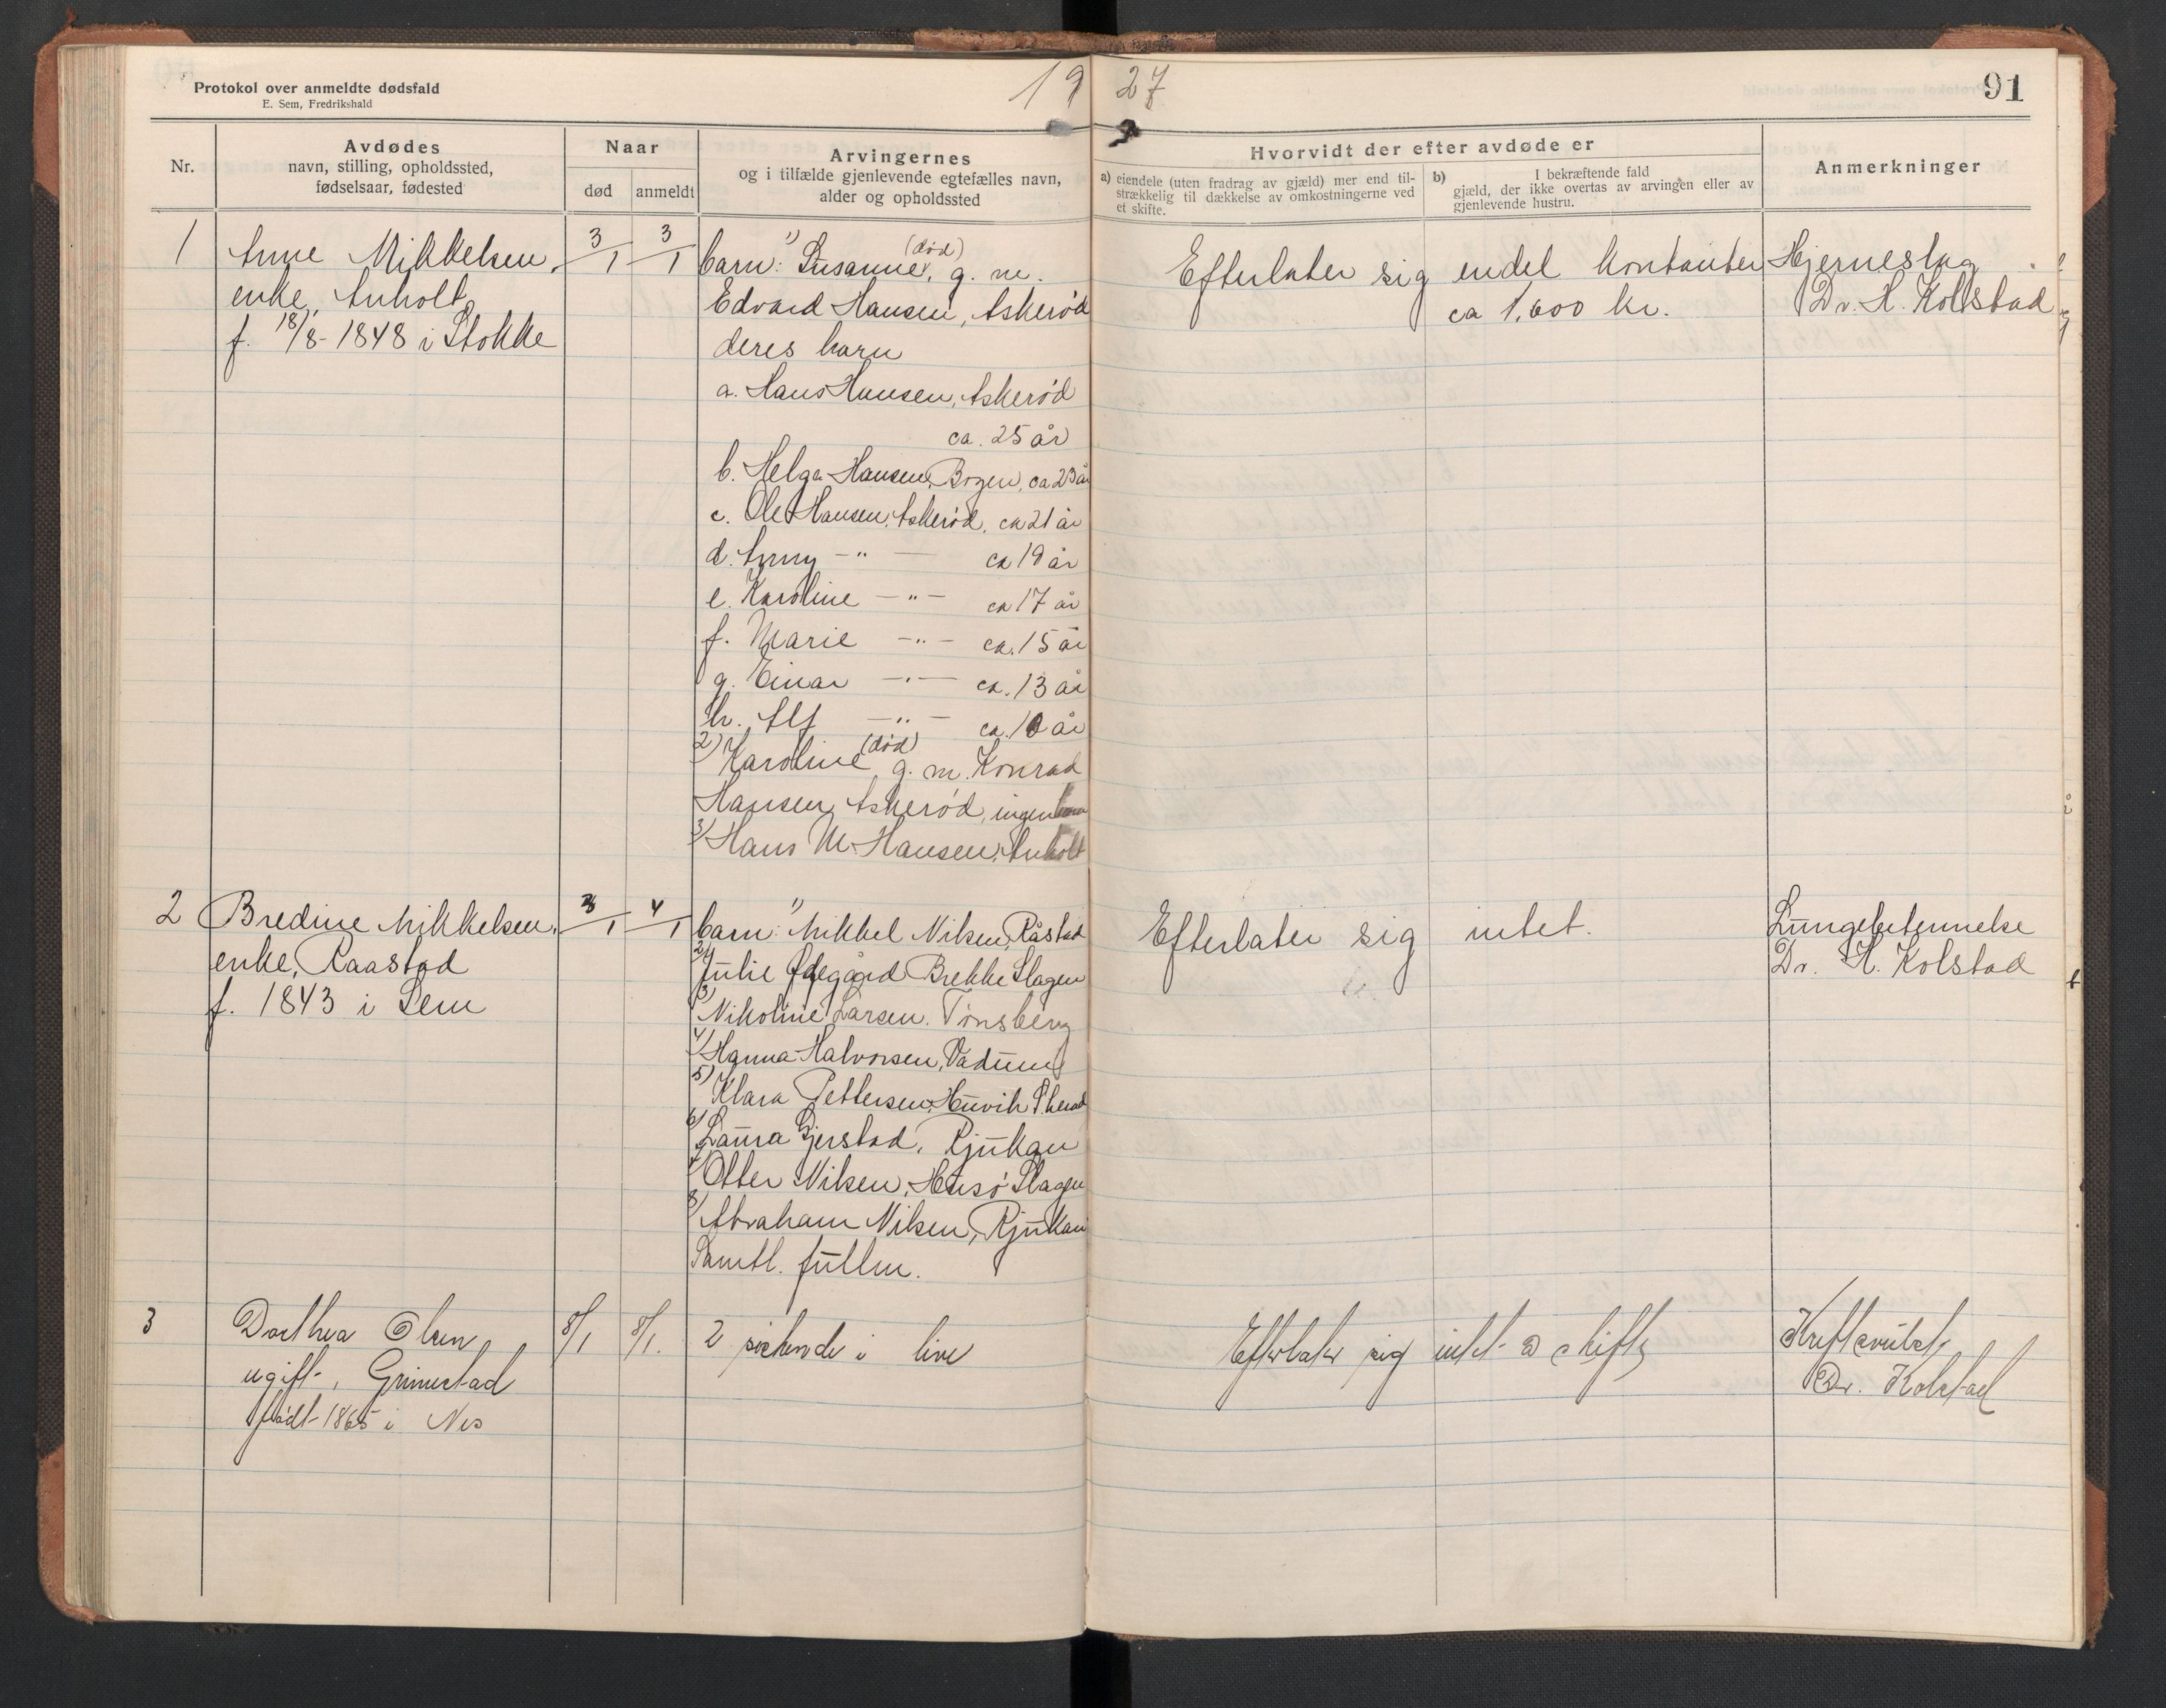 Protokol over anmeldte dødsfald
E. Sem, Fredrikshald
1927
91
Nr.
Avdødes
navn, stilling, opholdssted,
fødselsaar, fødested
Naar
død
anmeldt
Arvingernes
og i tilfælde gjenlevende egtefælles navn,
alder og opholdssted
Hvorvidt der efter avdøde er
a) eiendele (uten fradrag av gjæld) mer end til-
strækkelig til dækkelse av omkostningerne ved
et skifte.
b) I bekræftende fald
gjæld, der ikke overtas av arvingen eller av
gjenlevende hustru.
Anmerkninger
1
Anne Mikkelsen,
enke, Anholt,
f. 18/8-1848 i Stokke
3/1
3/1
barn: 1) Susanne (død), g. m.
Edvard Hansen, Askerød
deres barn
a. Hans Hansen, Askerød
ca. 25 år
b. Helga Hansen, Bogen, ca 23 år
c. Ole Hansen, Askerød, ca 21 år
d. Anny -"- ca 19 år
e. Karoline -"- ca 17 år
f. Marie -"- ca. 15 år
g. Einar -"- ca. 13 år
h. Alf -"- ca. 10 år
2) Karoline (død) g. m. Konrad
Hansen, Askerød, ingen barn
3) Hans M. Hansen, Anholt
Efterlater sig endel kontanter
ca 1,600 kr.
Hjerneslag
Dr. H. Kolstad
2
Bredine Mikkelsen,
enke, Raastad
f. 1843 i Sem
3/1
4/1
barn: 1) Mikkel Nilsen, Råstad
2) Julie Ødegård Brekke Slagen
3) Nikoline Larsen, Tønsberg
4) Hanna Halvorsen, Vadum
5) Klara Pettersen, Huvik S.herad
6) Laura Gjerstad, Rjukan
7) Otter Nilsen, Husø Slagen
8) Abraham Nilsen, Rjukan
Samtl. fullm.
Efterlater sig intet.
Lungebetennelse
Dr. H. Kolstad
3
Dorthea Olsen
ugift, Grimestad
født 1865 i Nes
8/1
8/1.
2 søskende i live
Efterlater sig intet å skifte
Kreftsvulst,
Dr. Kolstad